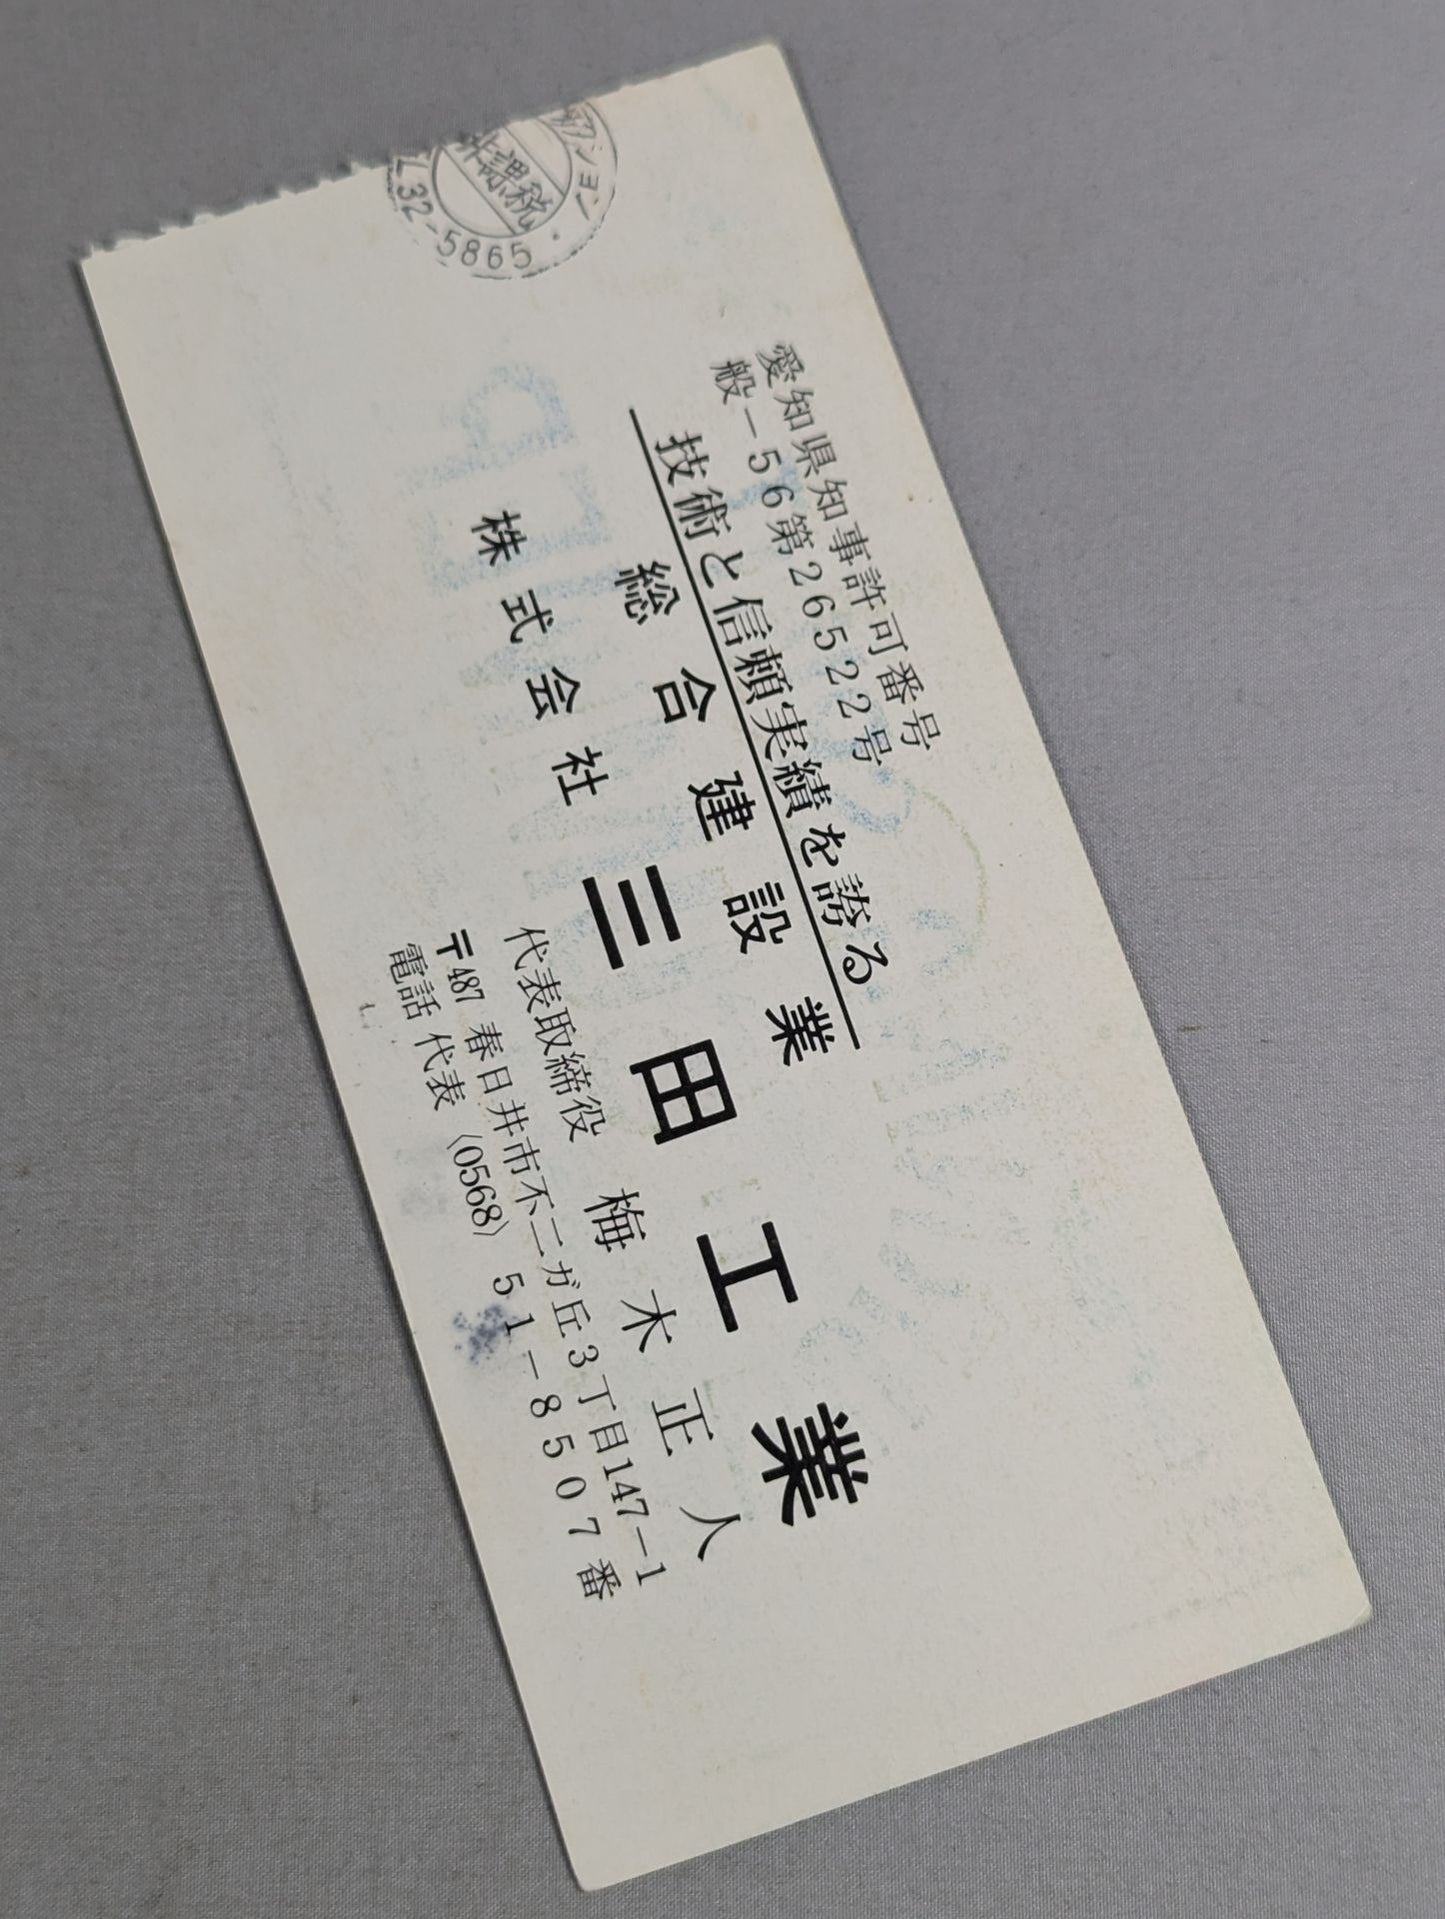 愛知県知事許可番号
般－56第26522号
技術と信頼実績を誇る
総合建設業
株式会社三田工業
代表取締役 梅木正人
〒487 春日井市不二ガ丘3丁目147-1
電話 代表 〈0568〉 51-8507番
非課税
32-5865